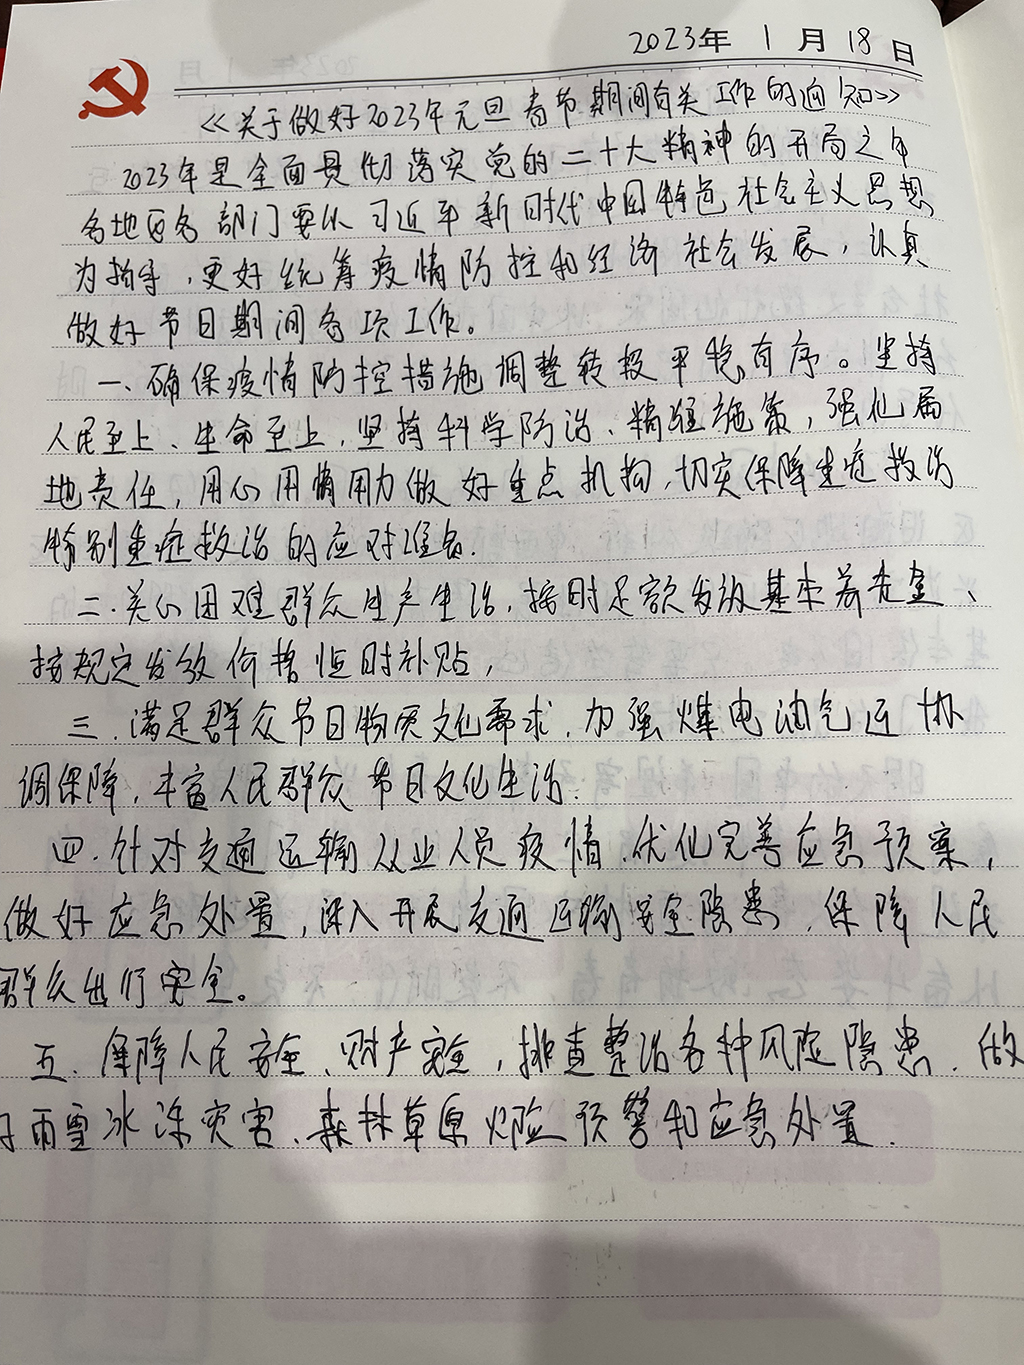 2023年 1 月 18 日
《关于做好2023年元旦春节期间有关工作的通知》
2023年是全面贯彻落实党的二十大精神的开局之年
各地区各部门要以习近平新时代中国特色社会主义思想
为指导,更好统筹疫情防控和经济社会发展,认真
做好节日期间各项工作。
一、确保疫情防控措施调整转段平稳有序。坚持
人民至上、生命至上,坚持科学防治、精准施策,强化属
地责任,用心用情用力做好重点机构,切实保障重症救治
特别重症救治的应对准备.
二.关心困难群众生产生活,按时足额发放基本养老金、
按规定发放价格临时补贴,
三.满足群众节日物质文化需求,加强煤电油气运协
调保障,丰富人民群众节日文化生活.
四.针对交通运输从业人员疫情,优化完善应急预案,
做好应急处置,深入开展交通运输安全隐患,保障人民
群众出行安全。
五、保障人民安全、财产安全,排查整治各种风险隐患.做
好雨雪冰冻灾害、森林草原火险预警和应急处置.